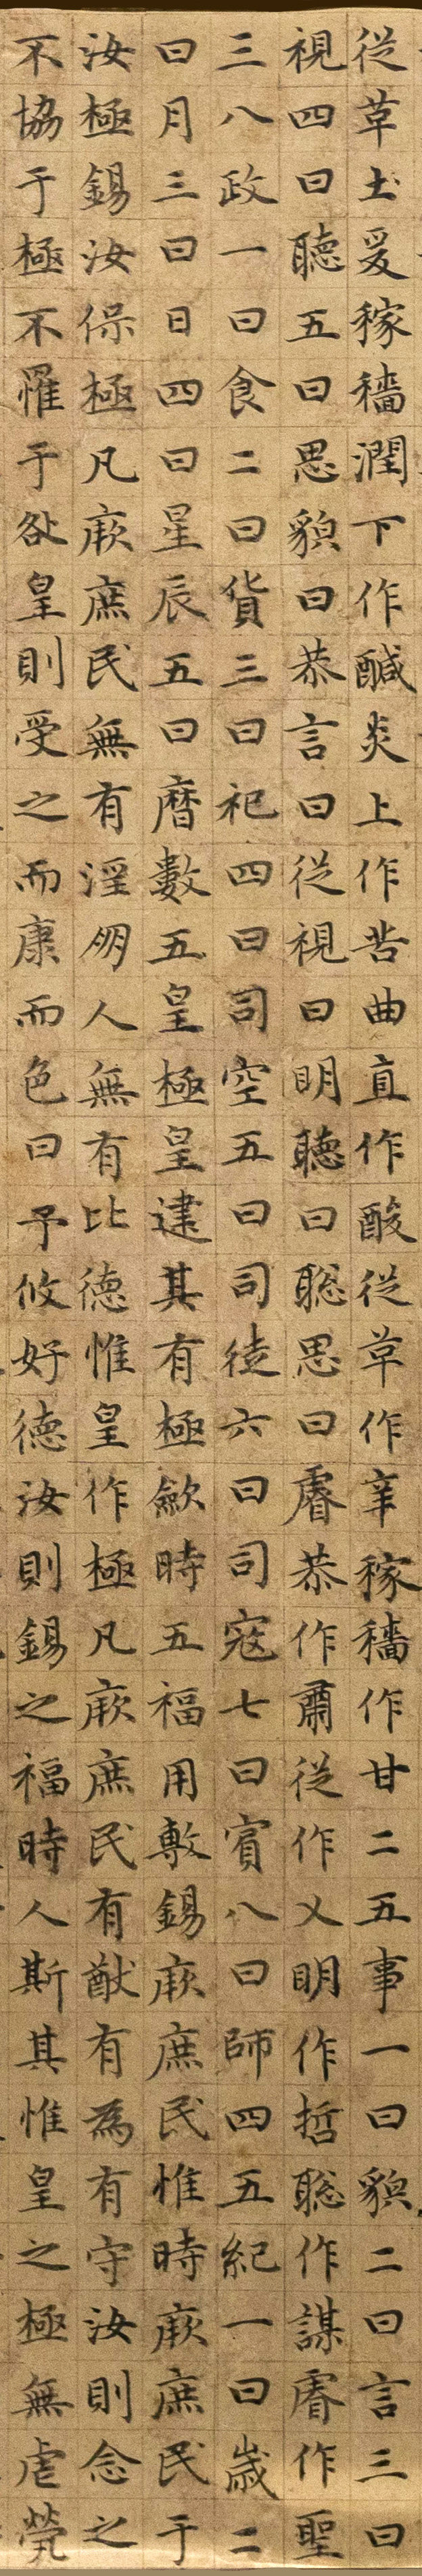 從革土爰稼穡潤下作鹹炎上作苦曲直作酸從革作辛稼穡作甘二五事一曰貌二曰言三曰
視四曰聽五曰思貌曰恭言曰從視曰明聽曰聡思曰睿恭作肅從作乂明作哲聡作謀睿作聖
三八政一曰食二曰貨三曰祀四曰司空五曰司徒六曰司寇七曰賓八曰師四五紀一曰歲二
曰月三曰日四曰星辰五曰曆數五皇極皇建其有極歛時五福用敷錫厥庶民惟時厥庶民于
汝極錫汝保極凡厥庶民無有淫朋人無有比德惟皇作極凡厥庶民有猷有為有守汝則念之
不協于極不罹于咎皇則受之而康而色曰予攸好德汝則錫之福時人斯其惟皇之極無虐煢